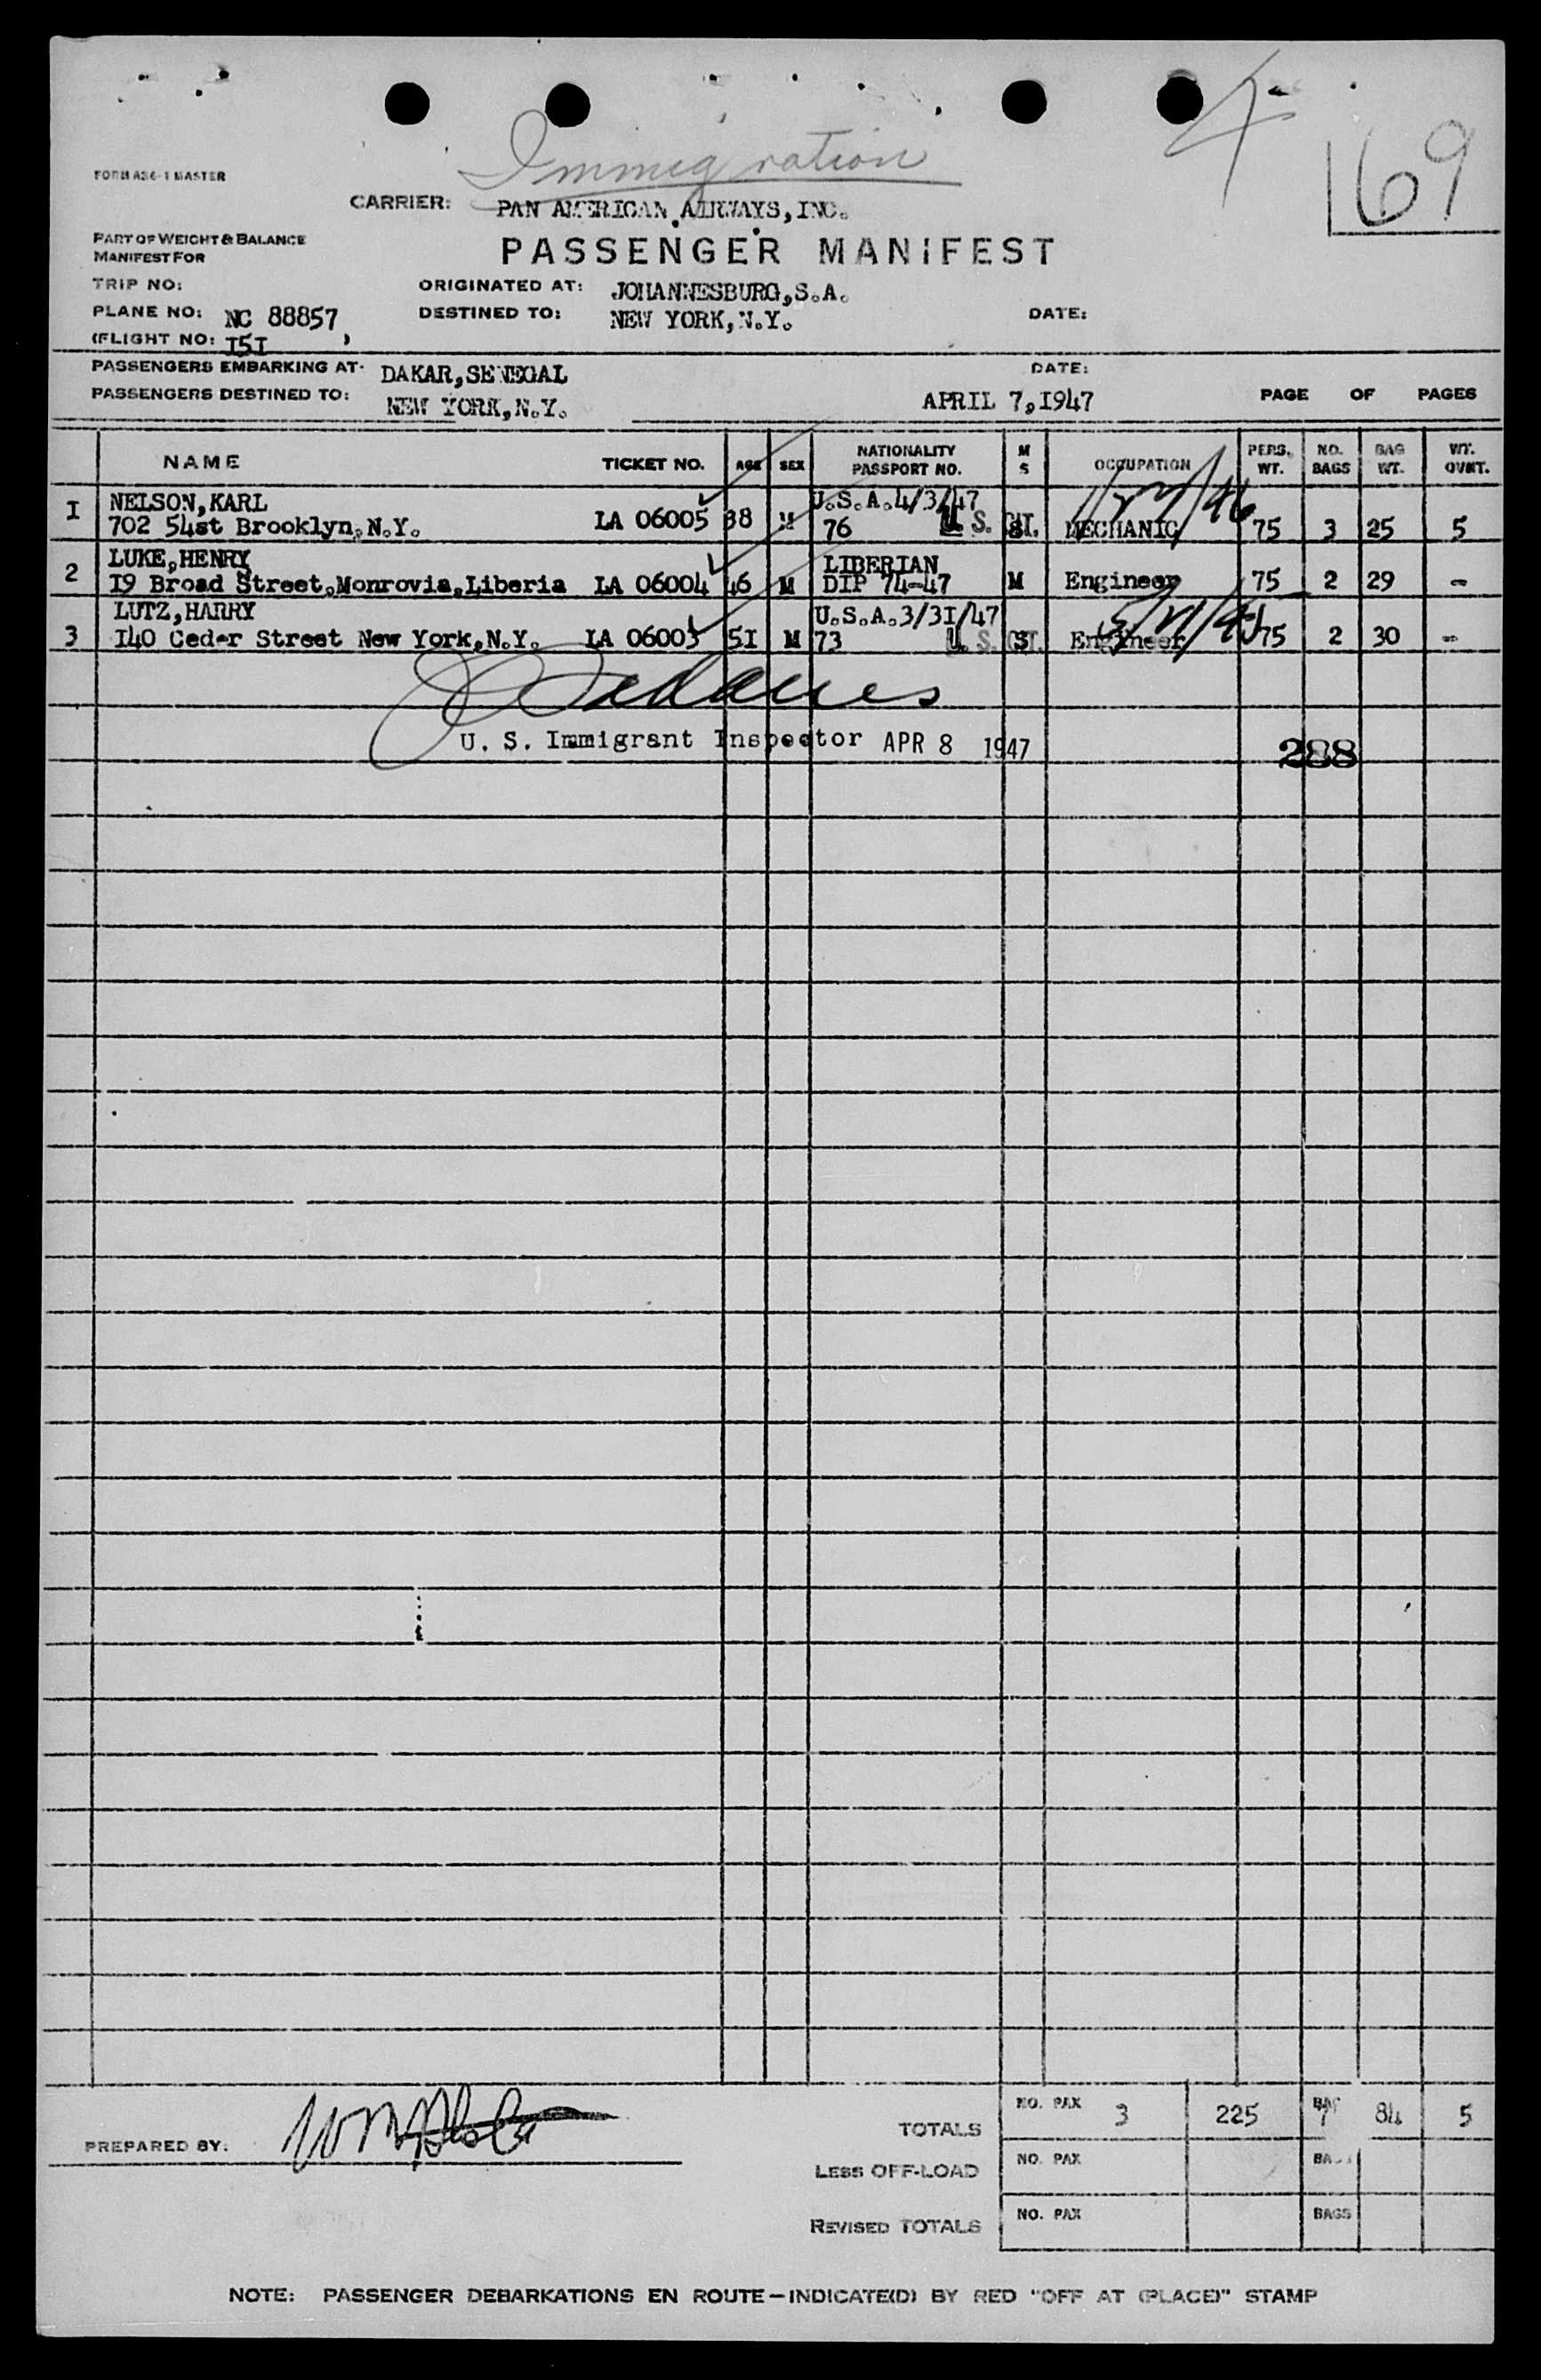 Immigration
4
169
FORM A36-1 MASTER
CARRIER: PAN AMERICAN AIRWAYS, INC.
PART OF WEIGHT & BALANCE
MANIFEST FOR
PASSENGER MANIFEST
TRIP NO:
ORIGINATED AT: JOHANNESBURG, S.A.
PLANE NO: NC 88857
DESTINED TO: NEW YORK, N.Y.
DATE:
(FLIGHT NO: I5I )
PASSENGERS EMBARKING AT: DAKAR, SENEGAL
DATE:
PASSENGERS DESTINED TO: NEW YORK, N.Y.
APRIL 7, 1947
PAGE OF PAGES
NAME TICKET NO. AGE SEX NATIONALITY PASSPORT NO. M S OCCUPATION PERS. WT. NO. BAGS BAG WT. WT. OVMT.
I NELSON, KARL U.S.A. 4/3/47
702 54st Brooklyn, N.Y. LA 06005 38 M 76 U. S. CIT. S MECHANIC 75 3 25 5
LUKE, HENRY LIBERIAN
2 I9 Broad Street, Monrovia, Liberia LA 06004 46 M DIP 74-47 M Engineer 75 2 29 -
LUTZ, HARRY U.S.A. 3/3I/47
3 I40 Ceder Street New York, N.Y. LA 06003 5I M 73 U. S. CIT. S Engineer 75 2 30 -
U. S. Immigrant Inspector APR 8 1947
288
PREPARED BY:
TOTALS NO. PAX 3 225 BAGS 7 84 5
LESS OFF-LOAD NO. PAX BAGS
REVISED TOTALS NO. PAX BAGS
NOTE: PASSENGER DEBARKATIONS EN ROUTE — INDICATE(D) BY RED "OFF AT (PLACE)" STAMP